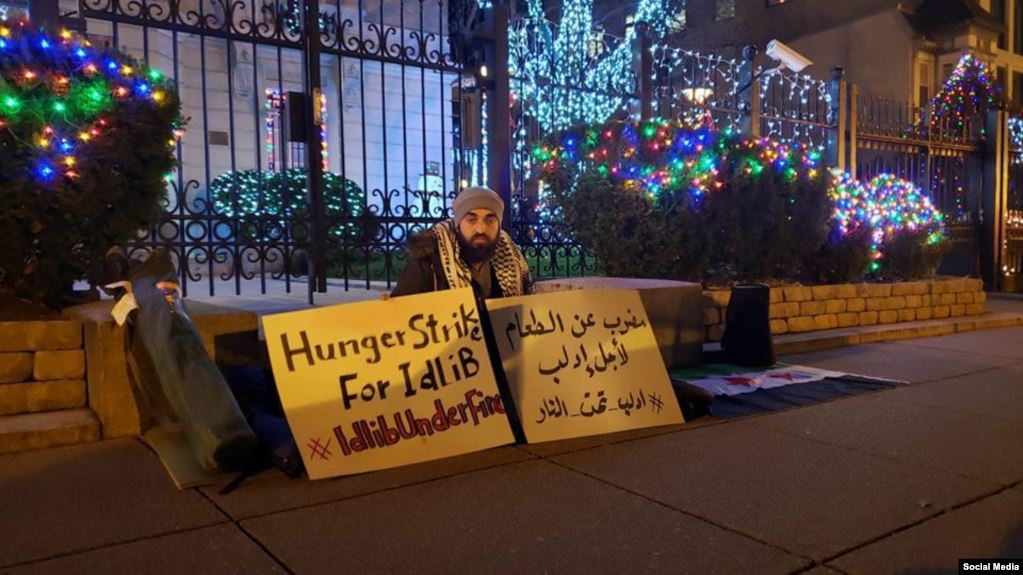 Hunger Strike
For IdLiB
#IdlibUnderFire
مضرب عن الطعام
لأجل إدلب
#ادلب_تحت_النار
Social Media